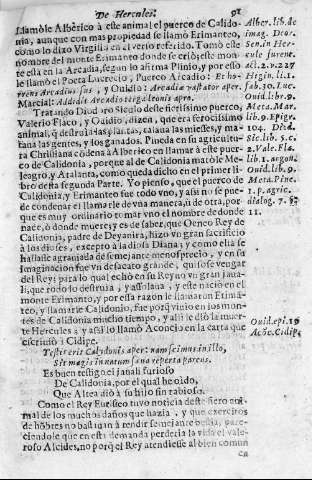 De Hercules. 91
Llamòle Alberico à este animal el puerco de Calido-
nia, aunque con mas propiedad se llamò Erimanteo,
como lo dixo Virgilio en el verso referido. Tomò este
nombre del monte Erimanto donde se criò; este mon-
te està en la Arcadia, segun lo afirma Plinio, y por esso
le llamò el Poeta Laurecio, Puerco Arcadio:
Marcial:
Tratando Diodoro Siculo deste ficrissimo puerco,
Valerio Flaco, y Ouidio, dizen, que era ferocissimo
animal, q̃ destruìa las plãtas, talaua las miesses, y ma-
taua las gentes, y los ganados. Pueda en su agricultu-
ra Christiana cõdena à Alberico en llamar à este puer-
co de Calidonia, porque al de Calidonia matòle Me-
leagro, y Atalanta, como queda dicho en el primer li-
bro desta segunda parte. Yo pienso, que el puerco de
Calidonia, y Erimanteo fue todo vno, y assi no se pue-
de condenar el llamarle de vna manera, ù de otra, por
que es muy ordinario tomar vno el nombre de donde
nace, ò donde muere; y es de saber, que Oeneo Rey de
Calidonia, padre de Deyanira, hizo vn gran sacrificio
à los dioses, excepto à la diosa Diana; y como ella se
hallasse agrauiada de semejante menosprecio, y en su
imaginacion fue vn desacato grande, quisose vengar
del Rey, para lo qual echò en su Reyno vn gran jaua-
li, que todo lo destruìa, y assolaua, y este naciò en el
monte Erimanto, y por esta razon le llamaron Erimã-
teo, y llamarle Calidonio, fue porq̃ viuio en los mon-
tes de Calidonia mucho tiempo, y alli le diò la muer-
te Hercules: y assi lo llamò Aconcio en la carta que
escriuiò à Cidipe.
Testis erit Calydonis aper: nam scimus in illo,
Sit magis in natum sæua reperta parens.
Es buen testigo el jauali furioso
De Calidonia, por el qual he oido,
Que Altea diò à su hijo fin rabioso.
Como el Rey Euristeo tuvo noticia deste fiero ani-
mal de los muchos daños que hazia, y que exercitos
de hõbres no bastauan à rendir semejante bestia, pare-
ciendole que en esta demanda perderia la vida el vale-
roso Alcides, no porq̃ el Rey atendiesse al bien comun
Alber. lib. de
imag. Deor.
Sen. in Her
cule furent.
act. 2. v. 227
Hirgin. li. 1.
fab. 30.
Ouid. lib. 9.
Meta. Mar.
lib. 9. Epigr.
104. Diod.
Sic. lib. 5. c.
2. Vale. Fla.
lib. 1. argon.
Ouid. lib. 9.
Meta. Pine.
1. p. agric.
dialog. 7. §
11.
Ouid. epi. 19
Acõc. Cidipe.